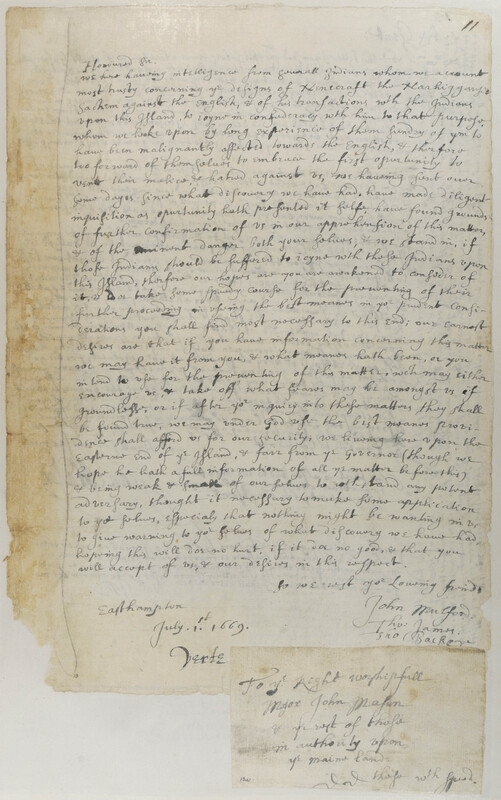 11
Honnored Sr.
we here haveing intelligence from severall Indians whom we account
most trusty concerning ye designs of Nenecraft the Narhigganset
Sachem against the English, & of his transactions with the Indians
upon this Island, to joyne in confederacy with him to that purpose,
whom we look upon by long experience of them sundry of ym to
have been malignantly affected towards the English, & therfore
too forward of themselves to embrace the first opurtunity to
vent their malice & hatred against us, we haveing sent over
some dayes since what discovery we have had, have made diligent
inquisition as opurtunity hath presented it selfe, have found grounds
of further confirmation of us in our apprehension of this matter,
& of the eminent danger both your selves, & we stand in, if
those Indians should be suffered to joyne with those Indians upon
this Island, therfore our hopes are you are awakened to consider of
it, & to take some speedy course for the preventing of their
further proceeding in useing the best meanes in yr prudent consi-
derations you shall find most necessary to this end; our earnest
desires are that if you have information concerning this matter
we may have it from you, & what meanes hath been, or you
intend to use for the preventing of the matter, wch may either
encourage us, & take off what feares may be amongst us if
groundlesse, or if after yr inquiry into these matters, they shall
be found true, we may under God use the best meanes provi-
dence shall afford us for our security, we liveing here upon the
Easterne end of ye Island, & farr from ye Governor (though we
hope he hath a full information of all ye matter before this)
& being weak & small of our selves to withstand any potent
adversary, thought it necessary to make some application
to yor selves, especialy that nothing might be wanting in us
to give warning to yor selves of what discovery we have had
hopeing this will doe no hurt, if it doe no good, & that you
will accept of us, & our desires in this respect.
so we rest yor Loveing freinds
John Mulford
Easthampton
Tho: James
July. 1.st 1669.
Verte
To ye Right worshipfull
Major John Mason
& ye rest of those
in authority upon
ye maine land
these wth speed.